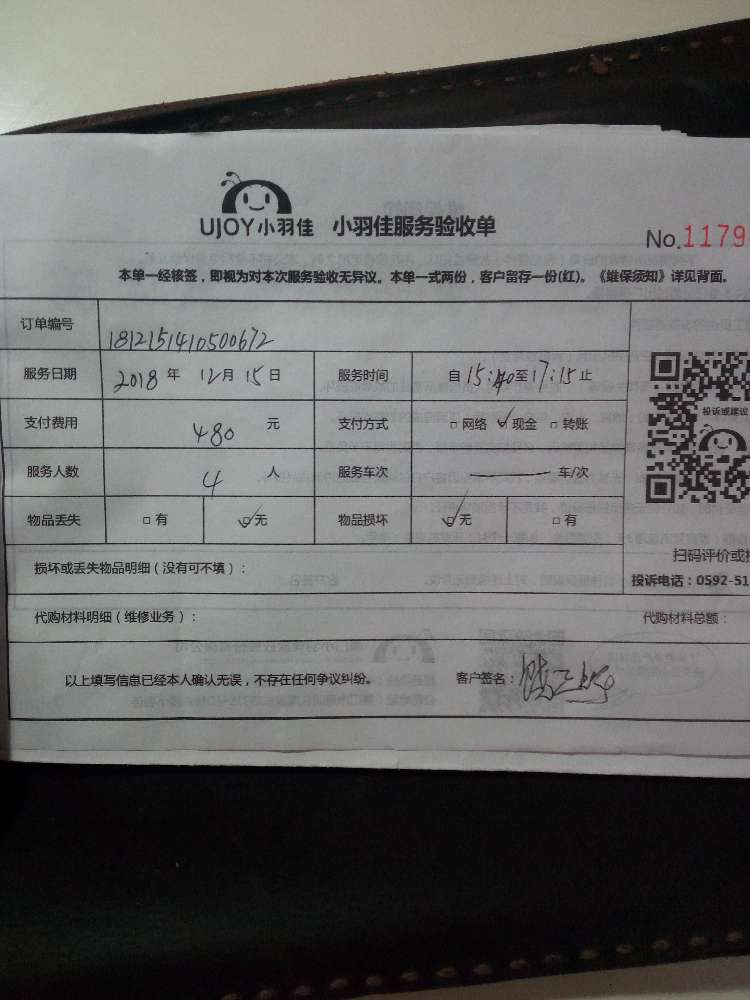 UJOY小羽佳 小羽佳服务验收单
No.1179
本单一经核签，即视为对本次服务验收无异议。本单一式两份，客户留存一份(红)。《维保须知》详见背面。
订单编号 1812151410500672
服务日期 2018 年 12 月 15 日 服务时间 自 15:40 至 17:15 止
投诉或建议
支付费用 480 元 支付方式 □ 网络 ☑ 现金 □ 转账
服务人数 4 人 服务车次 —— 车/次
物品丢失 □ 有 ☑ 无 物品损坏 ☑ 无 □ 有
扫码评价或
损坏或丢失物品明细（没有可不填）：
投诉电话：0592-51
代购材料明细（维修业务）： 代购材料总额：
以上填写信息已经本人确认无误，不存在任何争议纠纷。 客户签名：